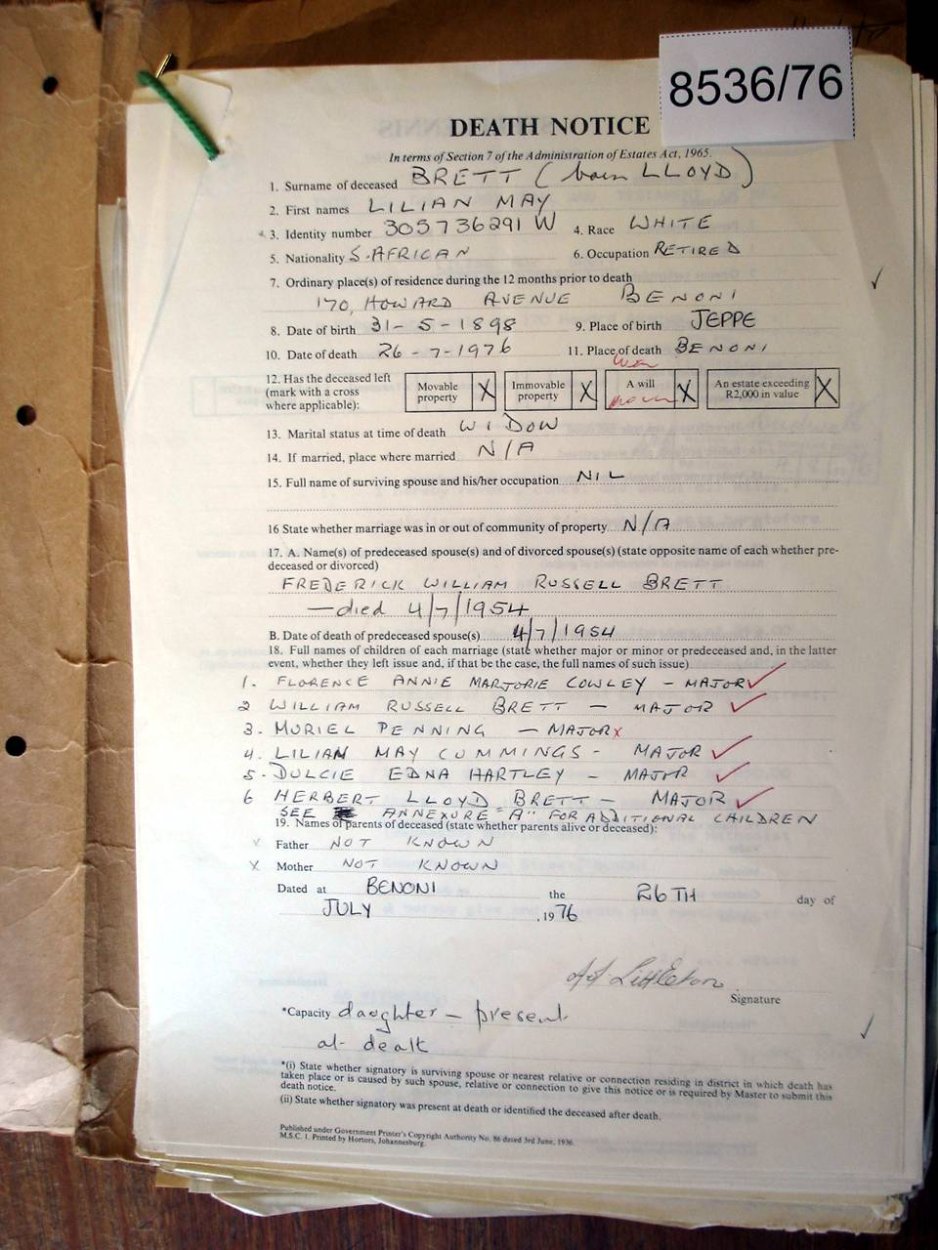 8536/76
DEATH NOTICE
In terms of Section 7 of the Administration of Estates Act, 1965.
1. Surname of deceased BRETT (born LLOYD)
2. First names LILIAN MAY
*3. Identity number 305736291 W 4. Race WHITE
5. Nationality S. AFRICAN 6. Occupation RETIRED
7. Ordinary place(s) of residence during the 12 months prior to death
170, HOWARD AVENUE BENONI
8. Date of birth 31-5-1898 9. Place of birth JEPPE
10. Date of death 26-7-1976 11. Place of death BENONI
12. Has the deceased left (mark with a cross where applicable): Movable property X Immovable property X A will X An estate exceeding R2,000 in value X
13. Marital status at time of death WIDOW
14. If married, place where married N/A
15. Full name of surviving spouse and his/her occupation NIL
16 State whether marriage was in or out of community of property N/A
17. A. Name(s) of predeceased spouse(s) and of divorced spouse(s) (state opposite name of each whether pre-
deceased or divorced)
FREDERICK WILLIAM RUSSELL BRETT
—died 4/7/1954
B. Date of death of predeceased spouse(s) 4/7/1954
18. Full names of children of each marriage (state whether major or minor or predeceased and, in the latter
event, whether they left issue and, if that be the case, the full names of such issue)
1. FLORENCE ANNIE MARJORIE COWLEY - MAJOR
2 WILLIAM RUSSELL BRETT - MAJOR
3. MURIEL PENNING - MAJOR x
4. LILIAN MAY CUMMINGS - MAJOR
5. DULCIE EDNA HARTLEY - MAJOR
6 HERBERT LLOYD BRETT - MAJOR
SEE ANNEXURE "A" FOR ADDITIONAL CHILDREN
19. Names of parents of deceased (state whether parents alive or deceased):
x Father NOT KNOWN
x Mother NOT KNOWN
Dated at BENONI the 26TH day of
JULY , 1976
Littleton
Signature
*Capacity daughter - present
at dealt
*(i) State whether signatory is surviving spouse or nearest relative or connection residing in district in which death has
taken place or is caused by such spouse, relative or connection to give this notice or is required by Master to submit this
death notice.
(ii) State whether signatory was present at death or identified the deceased after death.
Published under Government Printer's Copyright Authority No. 86 dated 3rd June, 1936.
M.S.C. 1. Printed by Hortors, Johannesburg.